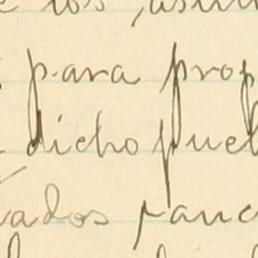 los, asim
para prop
dicho puel
ados ranc